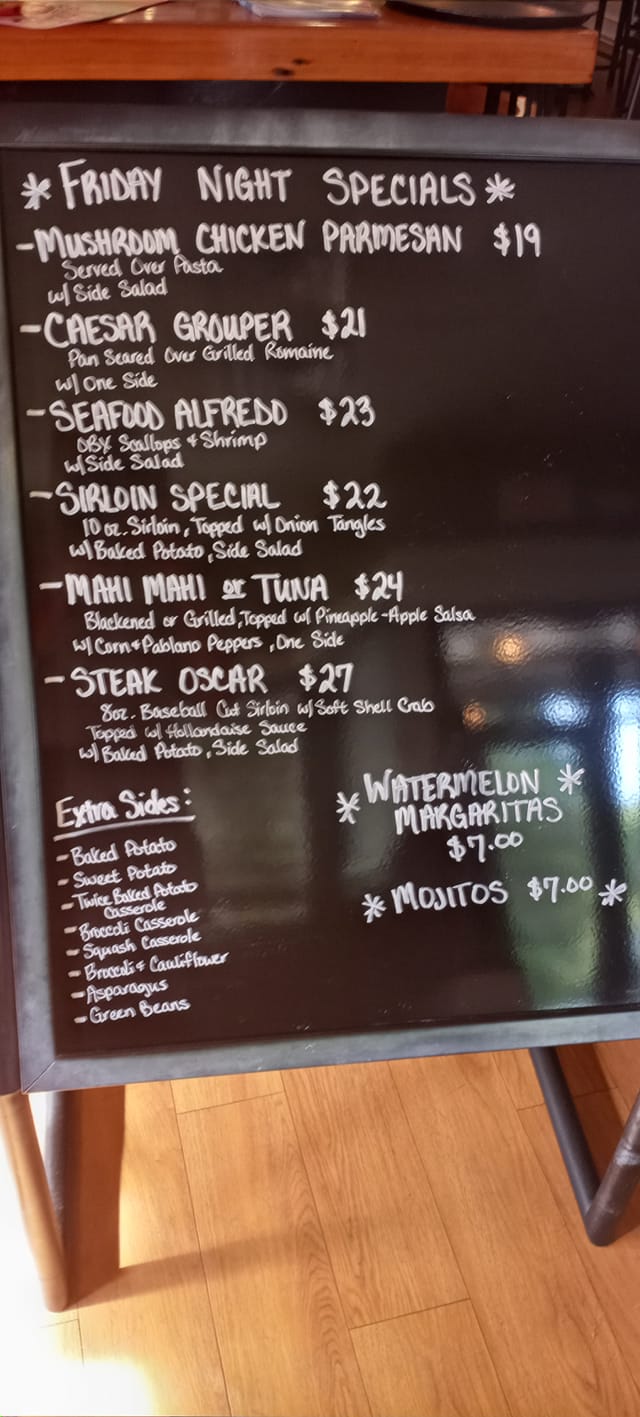 * FRIDAY NIGHT SPECIALS *
- MUSHROOM CHICKEN PARMESAN $19
Served Over Pasta
w/ Side Salad
- CAESAR GROUPER $21
Pan Seared Over Grilled Romaine
w/ One Side
- SEAFOOD ALFREDO $23
OBX Scallops & Shrimp
w/ Side Salad
- SIRLOIN SPECIAL $22
10 oz. Sirloin, Topped w/ Onion Tangles
w/ Baked Potato, Side Salad
- MAHI MAHI or TUNA $24
Blackened or Grilled, Topped w/ Pineapple-Apple Salsa
w/ Corn & Pablano Peppers, One Side
- STEAK OSCAR $27
8oz. Baseball Cut Sirloin w/ Soft Shell Crab
Topped w/ Hollandaise Sauce
w/ Baked Potato, Side Salad
Extra Sides:
- Baked Potato
- Sweet Potato
- Twice Baked Potato
Casserole
- Broccoli Casserole
- Squash Casserole
- Broccoli & Cauliflower
- Asparagus
- Green Beans
* WATERMELON *
MARGARITAS
$7.00
* MOJITOS $7.00 *